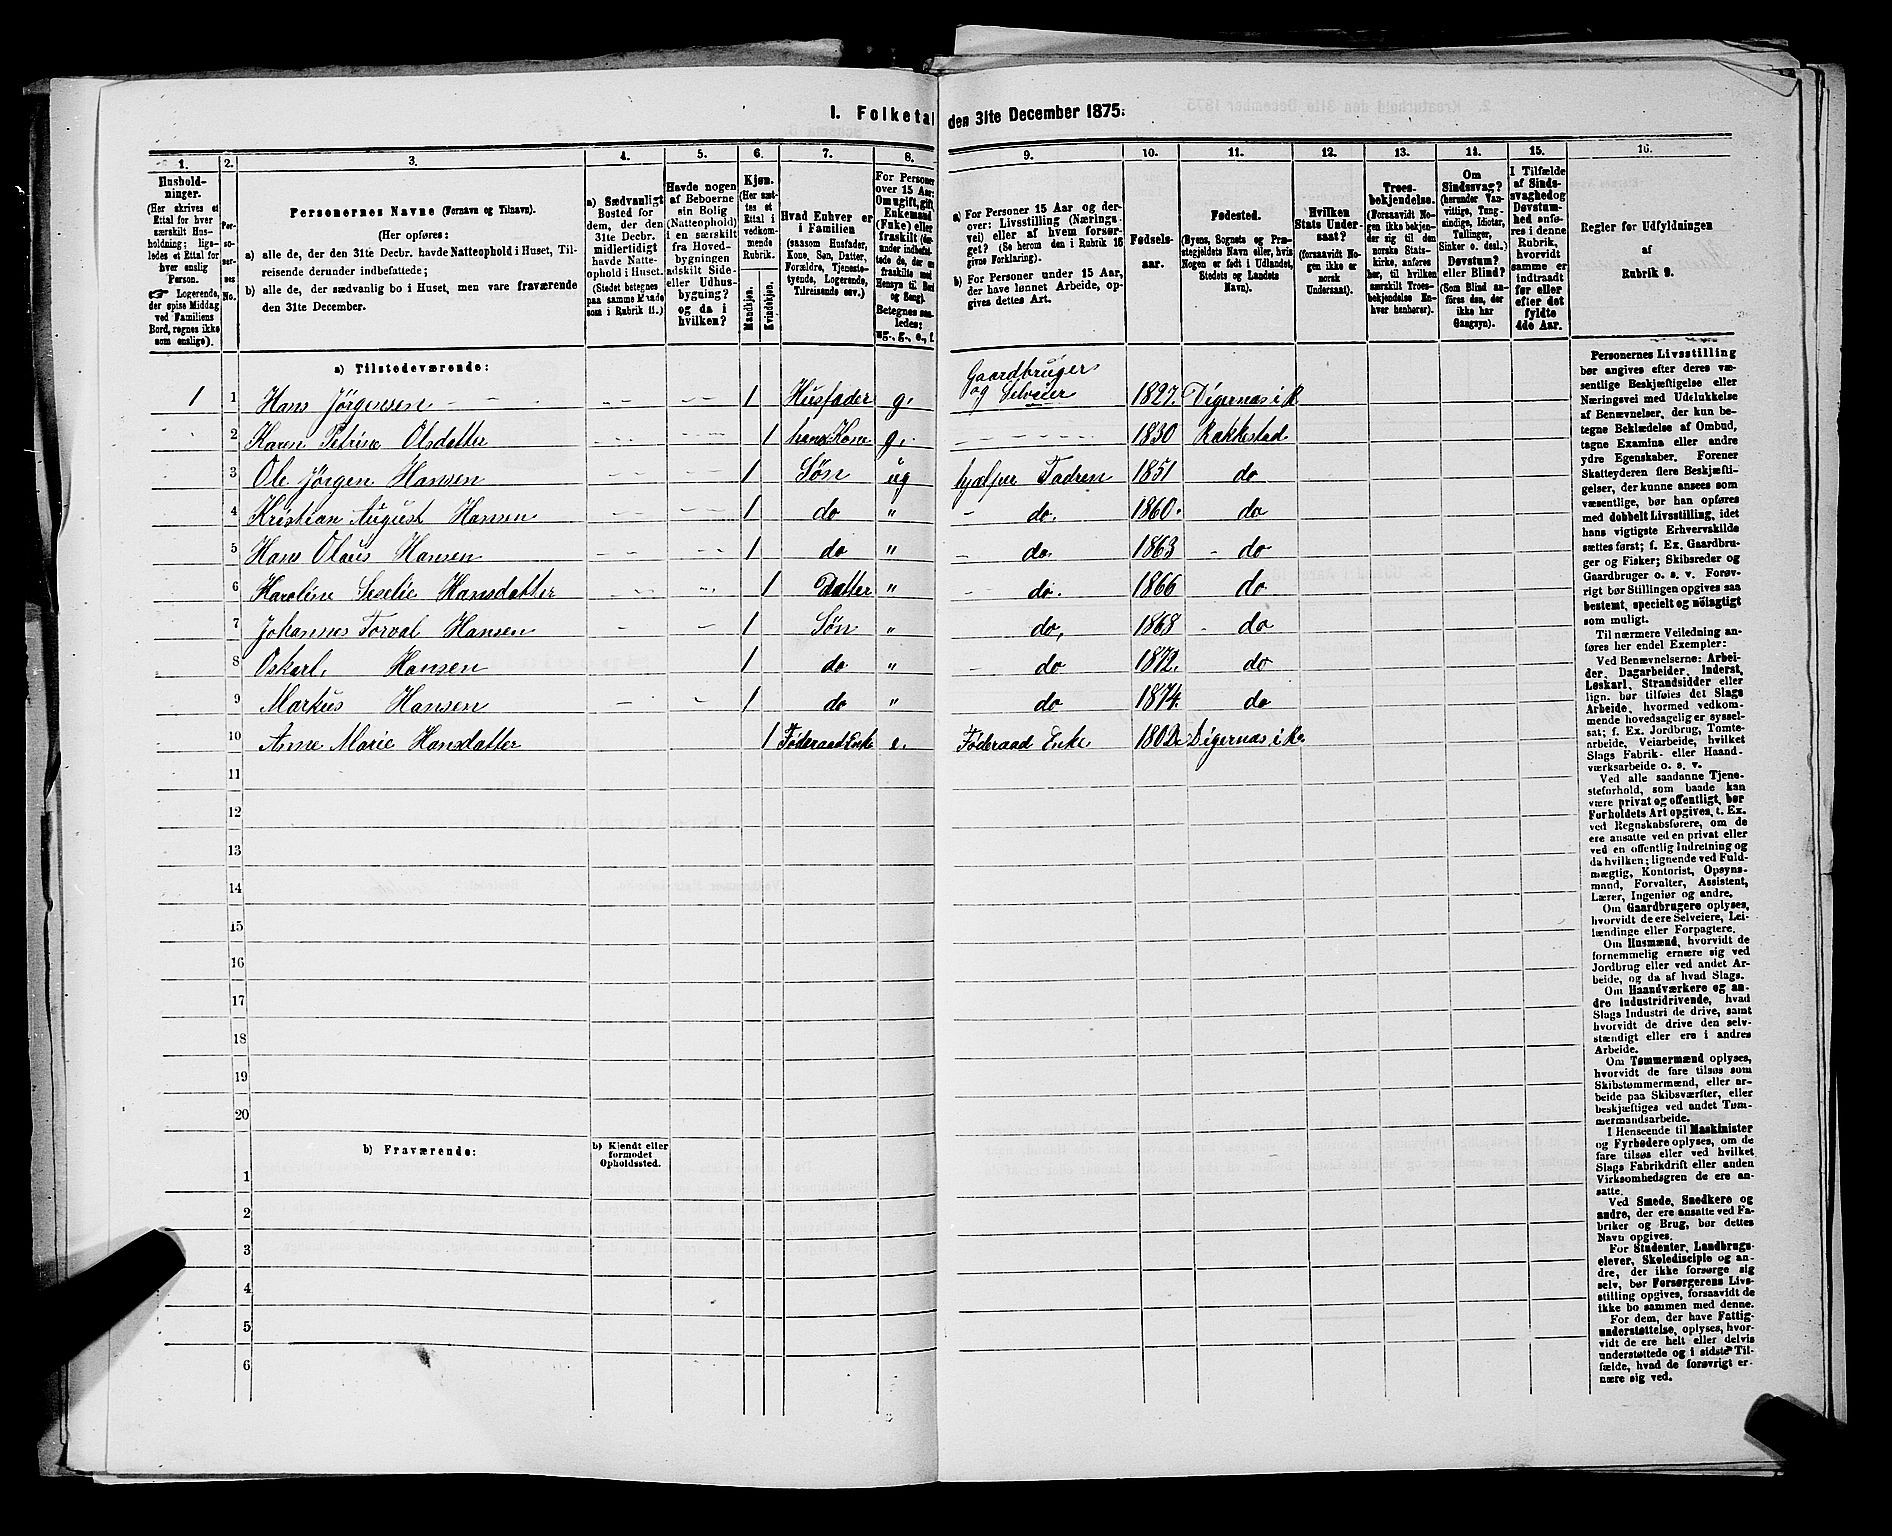 I. Folketal den 31te December 1875.
1. 2. 3. 4. 5. 6. 7. 8. 9. 10. 11. 12. 13. 14. 15. 16.
Husholdninger.
(Her skrives et
Ettal for hver
særskilt Husholdning;
ligeledes et Ettal
for hver enslig
Person.
☞ Logerende,
der spise Middag
ved Familiens
Bord, regnes ikke
som enslige).
Personernes No.
Personernes Navne (Fornavn og Tilnavn).
(Her opføres:
a) alle de, der den 31te Decbr. havde Natteophold i Huset, Tilreisende
derunder indbefattede;
b) alle de, der sædvanlig bo i Huset, men vare fraværende
den 31te December.
a) Sædvanligt
Bosted for
dem, der den
31te Decbr.
midlertidigt
havde Natteophold
i Huset.
(Stedet betegnes
paa samme Maade
som i Rubrik 11.)
Havde nogen
af Beboerne
sin Bolig
(Natteophold)
i en særskilt
fra Hovedbygningen
adskilt Side-
eller Udhusbygning?
og da i
hvilken?
Kjøn.
(Her sættes
et
Ettal i
vedkommende
Rubrik.
Mandkjøn.
Kvindekjøn.
Hvad Enhver er
i Familien
(saasom Husfader,
Kone, Søn, Datter,
Forældre, Tjenestetyende,
Logerende,
Tilreisende osv.)
For Personer
over 15 Aar:
Om ugift, gift,
Enkemand
(Enke) eller
fraskilt
Betegnes saaledes:
ug., g., e., f.
a) For Personer 15 Aar og derover:
Livsstilling (Næringsvei)
eller af hvem forsørget?
(Se herom den i Rubrik 16
givne Forklaring).
b) For Personer under 15 Aar,
der have lønnet Arbeide, opgives
dettes Art.
Fødselsaar.
Fødested.
(Byens, Sognets og Præstegjeldets
Navn eller, hvis
Nogen er født i Udlandet,
Stedets og Landets
Navn).
Hvilken
Stats Undersaat?
(forsaavidt Nogen
ikke er
norsk
Undersaat).
Troesbekjendelse.
(Forsaavidt Nogen
ikke bekjender
sig til den
norske Statskirke,
anføres
her, til hvilken
særskilt Troesbekjendelse
Enhver
henhører).
Om
Sindssvag?
(herunder Vanvittige,
Tungsindige,
Idioter,
Tullinger,
Sinker o. desl.)
Døvstum?
eller Blind?
(Som Blind anføres
den, der
ikke har
Gangsyn).
I Tilfælde
af Sindssvaghed
og
Døvstumhed
anføres
i denne
Rubrik,
hvorvidt
samme er
indtraadt
før eller
efter det
fyldte
4de Aar.
Regler for Udfyldningen
af
Rubrik 9.
a) Tilstedeværende:
1 1 Hans Jörgensen 1 Husfader g. Gaardbruger og Selveier 1827. Digernæs i R
2 Karen Petrine Olsdatter 1 hans Kone g. 1830 Rakkestad
3 Ole Jörgen Hansen 1 Søn ug hjælper Fadren 1851 do
4 Kristian August Hansen 1 do " - do. 1860. do
5 Hans Olaus Hansen 1 do " - do. 1863 - do
6 Karoline Hansdatter 1 Datter " - do. 1866 do
7 Johannes Torval Hansen 1 Søn " do, 1868 - do
8 Oskarl, Hansen 1 do " - do 1872. do
9 Markus Hansen 1 do " do 1874. do
10 Anne Marie Hansdatter 1 Föderaad Enke e. Föderaad Enke 1802 Digernæs i R
11
12
13
14
15
16
17
18
19
20
b) Fraværende:
b) Kjendt eller
formodet
Opholdssted.
1
2
3
4
5
6
Personernes Livsstilling
bør angives efter deres væsentlige
Beskjæftigelse eller
Næringsvei med Udelukkelse
af Benævnelser, der kun betegne
Beklædelse af Ombud,
tagne Examina eller andre
ydre Egenskaber. Forener
Skatteyderen flere Beskjæftigelser,
der kunne ansees som
væsentlige, bør han opføres
med dobbelt Livsstilling, idet
hans vigtigste Erhvervskilde
sættes først; f. Ex. Gaardbruger
og Fisker; Skibsreder og
Gaardbruger o. s. v. Forøvrigt
bør Stillingen opgives saa
bestemt, specielt og nöiagtigt
som muligt.
Til nærmere Veiledning anføres
her endel Exempler:
Ved Benævnelserne: Arbeider,
Dagarbeider, Inderst,
Løskarl, Strandsidder eller
lign. bør tilføies det Slags
Arbeide, hvormed vedkommende
hovedsagelig er sysselsat;
f. Ex. Jordbrug, Tomtearbeide,
Veiarbeide, hvilket
Slags Fabrik- eller Haandværksarbeide
o. s. v.
Ved alle saadanne Tjenesteforhold,
som baade kan
være privat og offentligt, bør
Forholdets Art opgives, t. Ex.
ved Regnskabsførere, om de
ere ansatte ved en privat eller
ved en offentlig Indretning og
da hvilken; lignende ved Fuldmægtig,
Kontorist, Opsynsmand,
Forvalter, Assistent,
Lærer, Ingeniør og andre.
Om Gaardbrugere oplyses,
hvorvidt de ere Selveiere, Leilændinge
eller Forpagtere.
Om Husmænd, hvorvidt de
fornemmelig ernære sig ved
Jordbrug eller ved andet Arbeide,
og da af hvad Slags.
Om Haandværkere og andre
Industridrivende, hvad
Slags Industri de drive, samt
hvorvidt de drive den selvstændigt
eller ere i andres
Arbeide.
Om Tømmermænd oplyses,
hvorvidt de fare tilsøs som
Skibstømmermænd, eller arbeide
paa Skibsværfter, eller
beskjæftiges ved andet Tømmermandsarbeide.
I Henseende til Maskinister
og Fyrbødere oplyses, om de
fare tilsøs eller ved hvilket
Slags Fabrikdrift eller anden
Virksomhedsgren de ere ansatte.
Ved Smede, Snedkere og
andre, der ere ansatte ved Fabriker
og Brug, bør dettes
Navn opgives.
For Studenter, Landbrugselever,
Skoledisciple og andre,
der ikke forsørge sig
selv, bør Forsørgerens Livsstilling
opgives, forsaavidt de
ikke bo sammen med denne.
For dem, der have Fattigunderstøttelse,
oplyses, hvorvidt
de ere helt eller delvis
understøttede og i sidste Tilfælde,
hvad de forøvrigt ernære
sig ved.